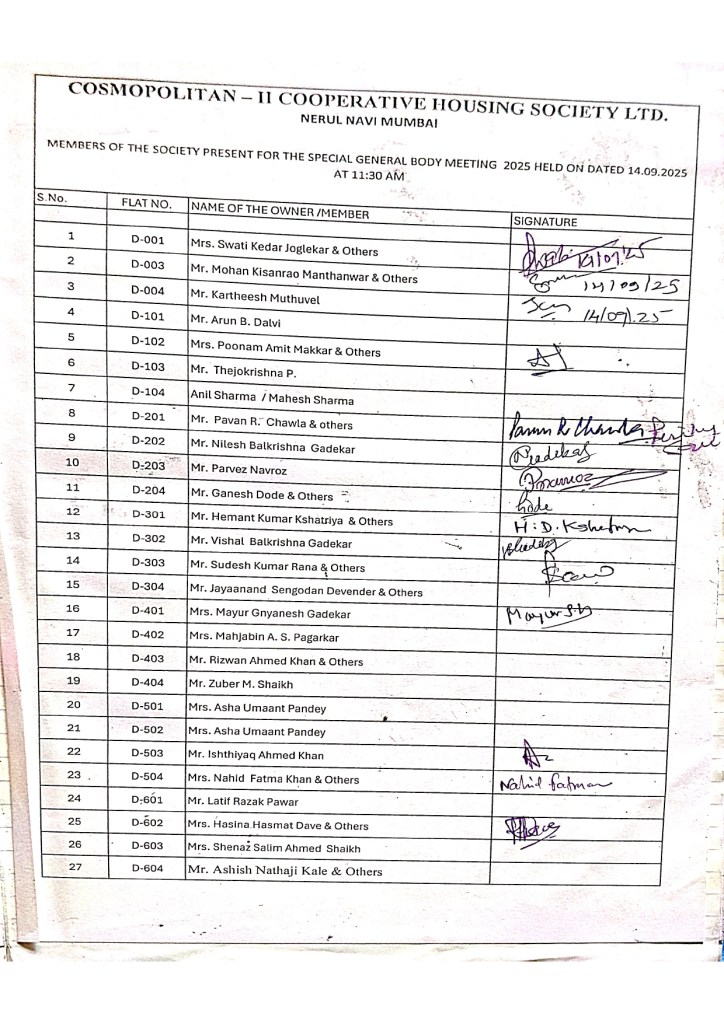 COSMOPOLITAN – II COOPERATIVE HOUSING SOCIETY LTD.
NERUL NAVI MUMBAI
MEMBERS OF THE SOCIETY PRESENT FOR THE SPECIAL GENERAL BODY MEETING 2025 HELD ON DATED 14.09.2025
AT 11:30 AM
S.No. FLAT NO. NAME OF THE OWNER /MEMBER SIGNATURE
1 D-001 Mrs. Swati Kedar Joglekar & Others 14/09/25
2 D-003 Mr. Mohan Kisanrao Manthanwar & Others 14/09/25
3 D-004 Mr. Kartheesh Muthuvel 14/09/.25
4 D-101 Mr. Arun B. Dalvi
5 D-102 Mrs. Poonam Amit Makkar & Others
6 D-103 Mr. Thejokrishna P.
7 D-104 Anil Sharma / Mahesh Sharma
8 D-201 Mr. Pavan R. Chawla & others
9 D-202 Mr. Nilesh Balkrishna Gadekar
10 D-203 Mr. Parvez Navroz
11 D-204 Mr. Ganesh Dode & Others
12 D-301 Mr. Hemant Kumar Kshatriya & Others H.D.
13 D-302 Mr. Vishal Balkrishna Gadekar
14 D-303 Mr. Sudesh Kumar Rana & Others
15 D-304 Mr. Jayaanand Sengodan Devender & Others
16 D-401 Mrs. Mayur Gnyanesh Gadekar
17 D-402 Mrs. Mahjabin A. S. Pagarkar
18 D-403 Mr. Rizwan Ahmed Khan & Others
19 D-404 Mr. Zuber M. Shaikh
20 D-501 Mrs. Asha Umaant Pandey
21 D-502 Mrs. Asha Umaant Pandey
22 D-503 Mr. Ishthiyaq Ahmed Khan
23 D-504 Mrs. Nahid Fatma Khan & Others Nahid
24 D-601 Mr. Latif Razak Pawar
25 D-602 Mrs. Hasina Hasmat Dave & Others
26 D-603 Mrs. Shenaz Salim Ahmed Shaikh
27 D-604 Mr. Ashish Nathaji Kale & Others